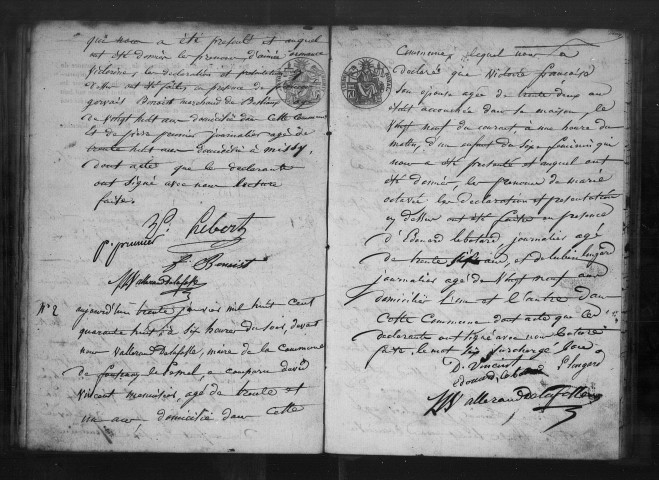 que nous a été présenté et auquel
ont été donné les prénoms d'aimée ormance
victorine, les déclaration et présentation
faites en présence de
gervais Benoist marchand de Bestiaux agé
de vingt huit ans domicilié dans cette commune
et de pierre prunier journalier agé de
trente huit ans domicilié à missy,
dont acte que le déclarant
ont signé avec nous lecture
faite.
hebert
P. prunier
Benoist
Vallerand delafosse
N° 2
aujourd'hui trente janvier mil huit cent
quarante huit à six heures du soir, devant
nous vallerand delafosse, maire de la Commune
de fontenay le pesnel, a comparu david
vincent menuisier, agé de trente et
un ans, domicilié dans cette
Commune, lequel nous a
déclaré que victoire françoise
son épouse agée de trente deux ans
était accouchée dans sa maison, le
vingt neuf du courant, à une heure du
matin, d'un enfant du sexe féminin qui
nous a été présenté et auquel ont
été donné, les prénoms de marie
octavie les déclaration et présentation
ci dessus ont été faites en présence
d'Edouard lebotard journalier agé
de trente six ans, et de
journalier agé de vingt neuf ans
domiciliés l'un et l'autre dans
cette Commune dont acte que les
déclarants ont signé avec nous lecture
faite. le mot six surchargé
D. Vincent
édouard lebotard
Vallerand Delafosse